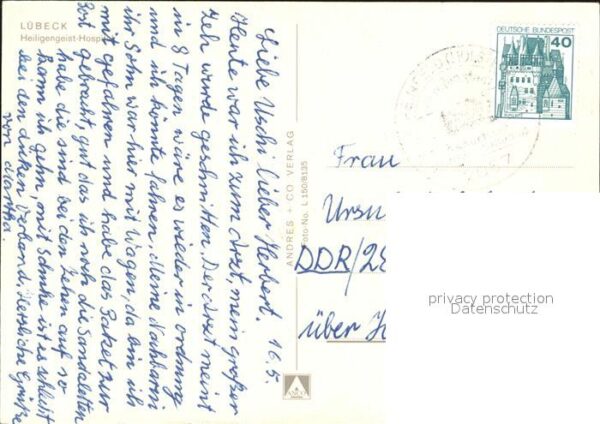 LÜBECK
Heiligengeist-Hospi
16.5.
Liebe Uschi lieber Herbert.
Heute war ich zum Arzt, mein großer
Zeh wurde geschnitten. Der Arzt meint
in 8 Tagen wäre es wieder in ordnung
und ich könnte fahren. Meine Nachbarin
ihr Sohn war hier mit Wagen, da bin ich
mit gefahren und habe das Paket zur
Post gebracht, gut das ich noch die Sandaletten
habe die sind bei den Zehen auf so
kann ich gehn, mit Schuhe ist es schlecht
bei den dicken Verband. Herzliche Grüße
von Martha.
ANDRES + CO VERLAG
Foto-No. L 150/8135
ASCO
DEUTSCHE BUNDESPOST
40
Frau
Ursu
DDR/25
über
privacy protection
Datenschutz